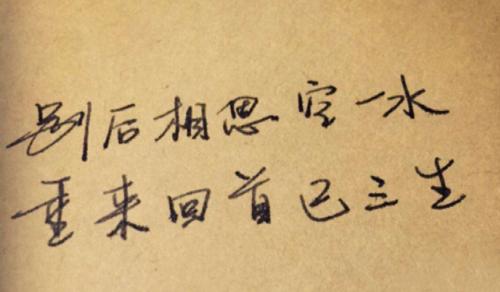 别后相思空一水
重来回首已三生